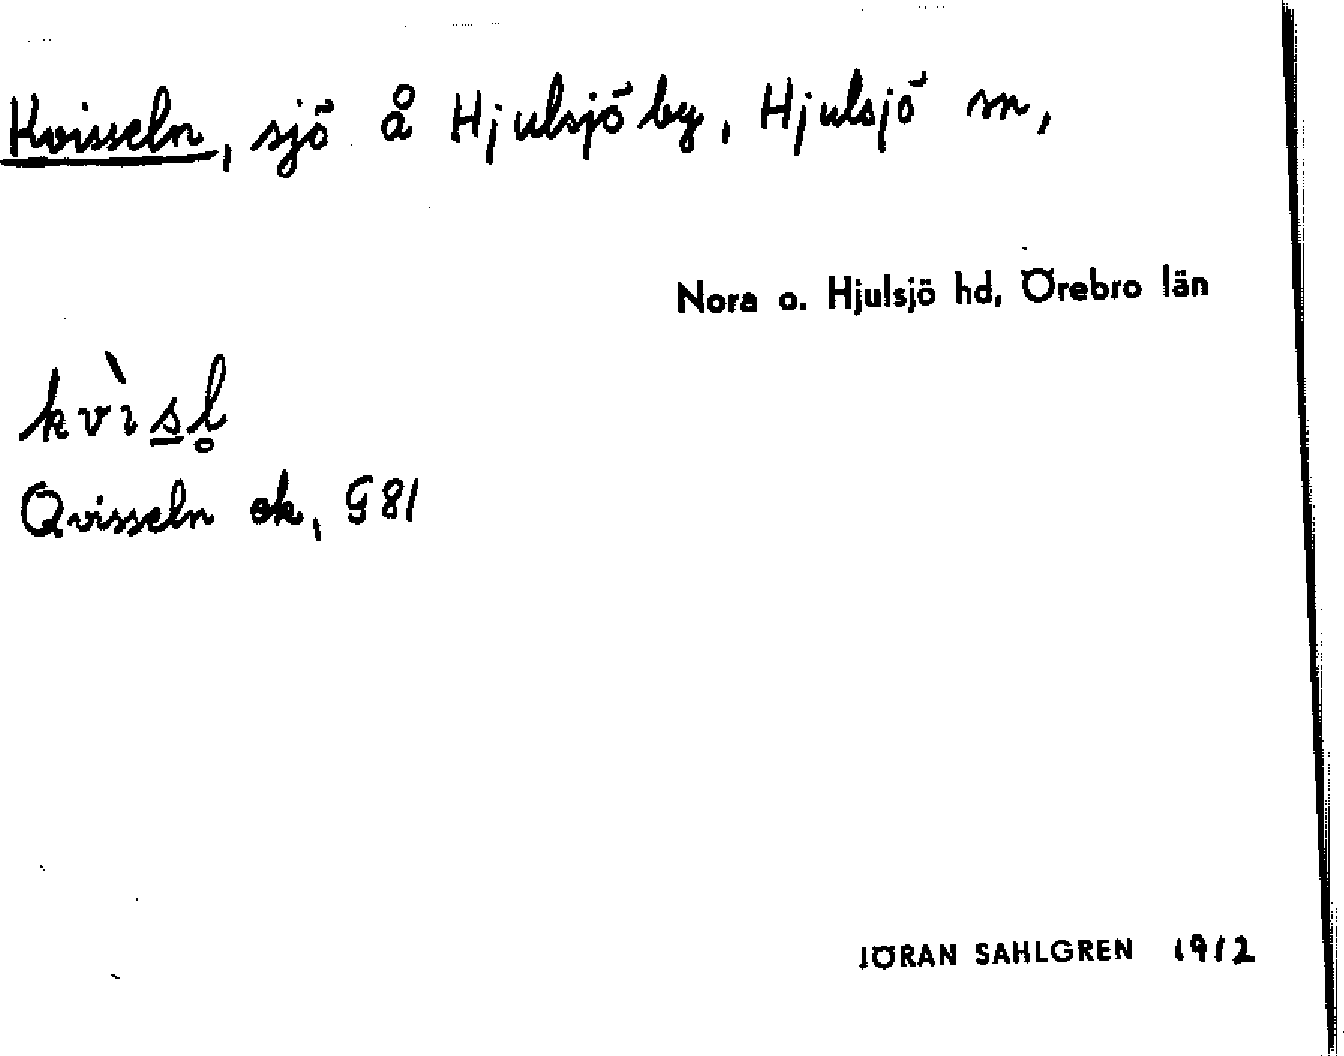 Kvisseln, sjö å Hjulsjöby, Hjulsjö sn,
Nora o. Hjulsjö hd, Örebro län
kvìs̲l̥
Qvisseln ek, G81
JÖRAN SAHLGREN 1912